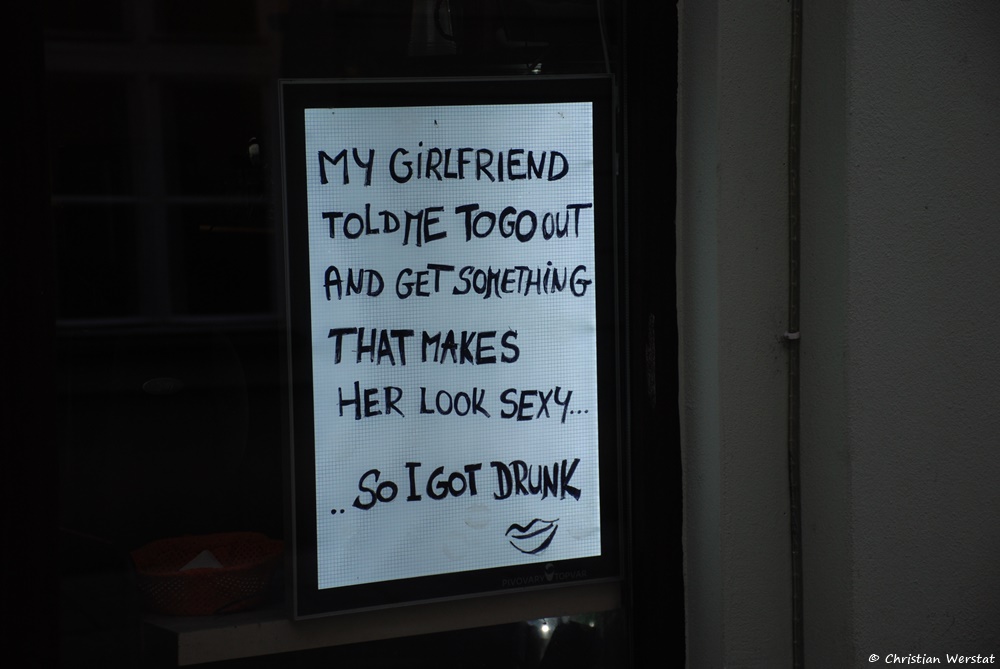 MY GiRLFRIEND
TOLD ME TO GO OUT
AND GET SOMETHiNG
THAT MAKES
HER LOOK SEXY...
..SO I GOT DRUNK
PIVOVARY TOPVAR
© Christian Werstat